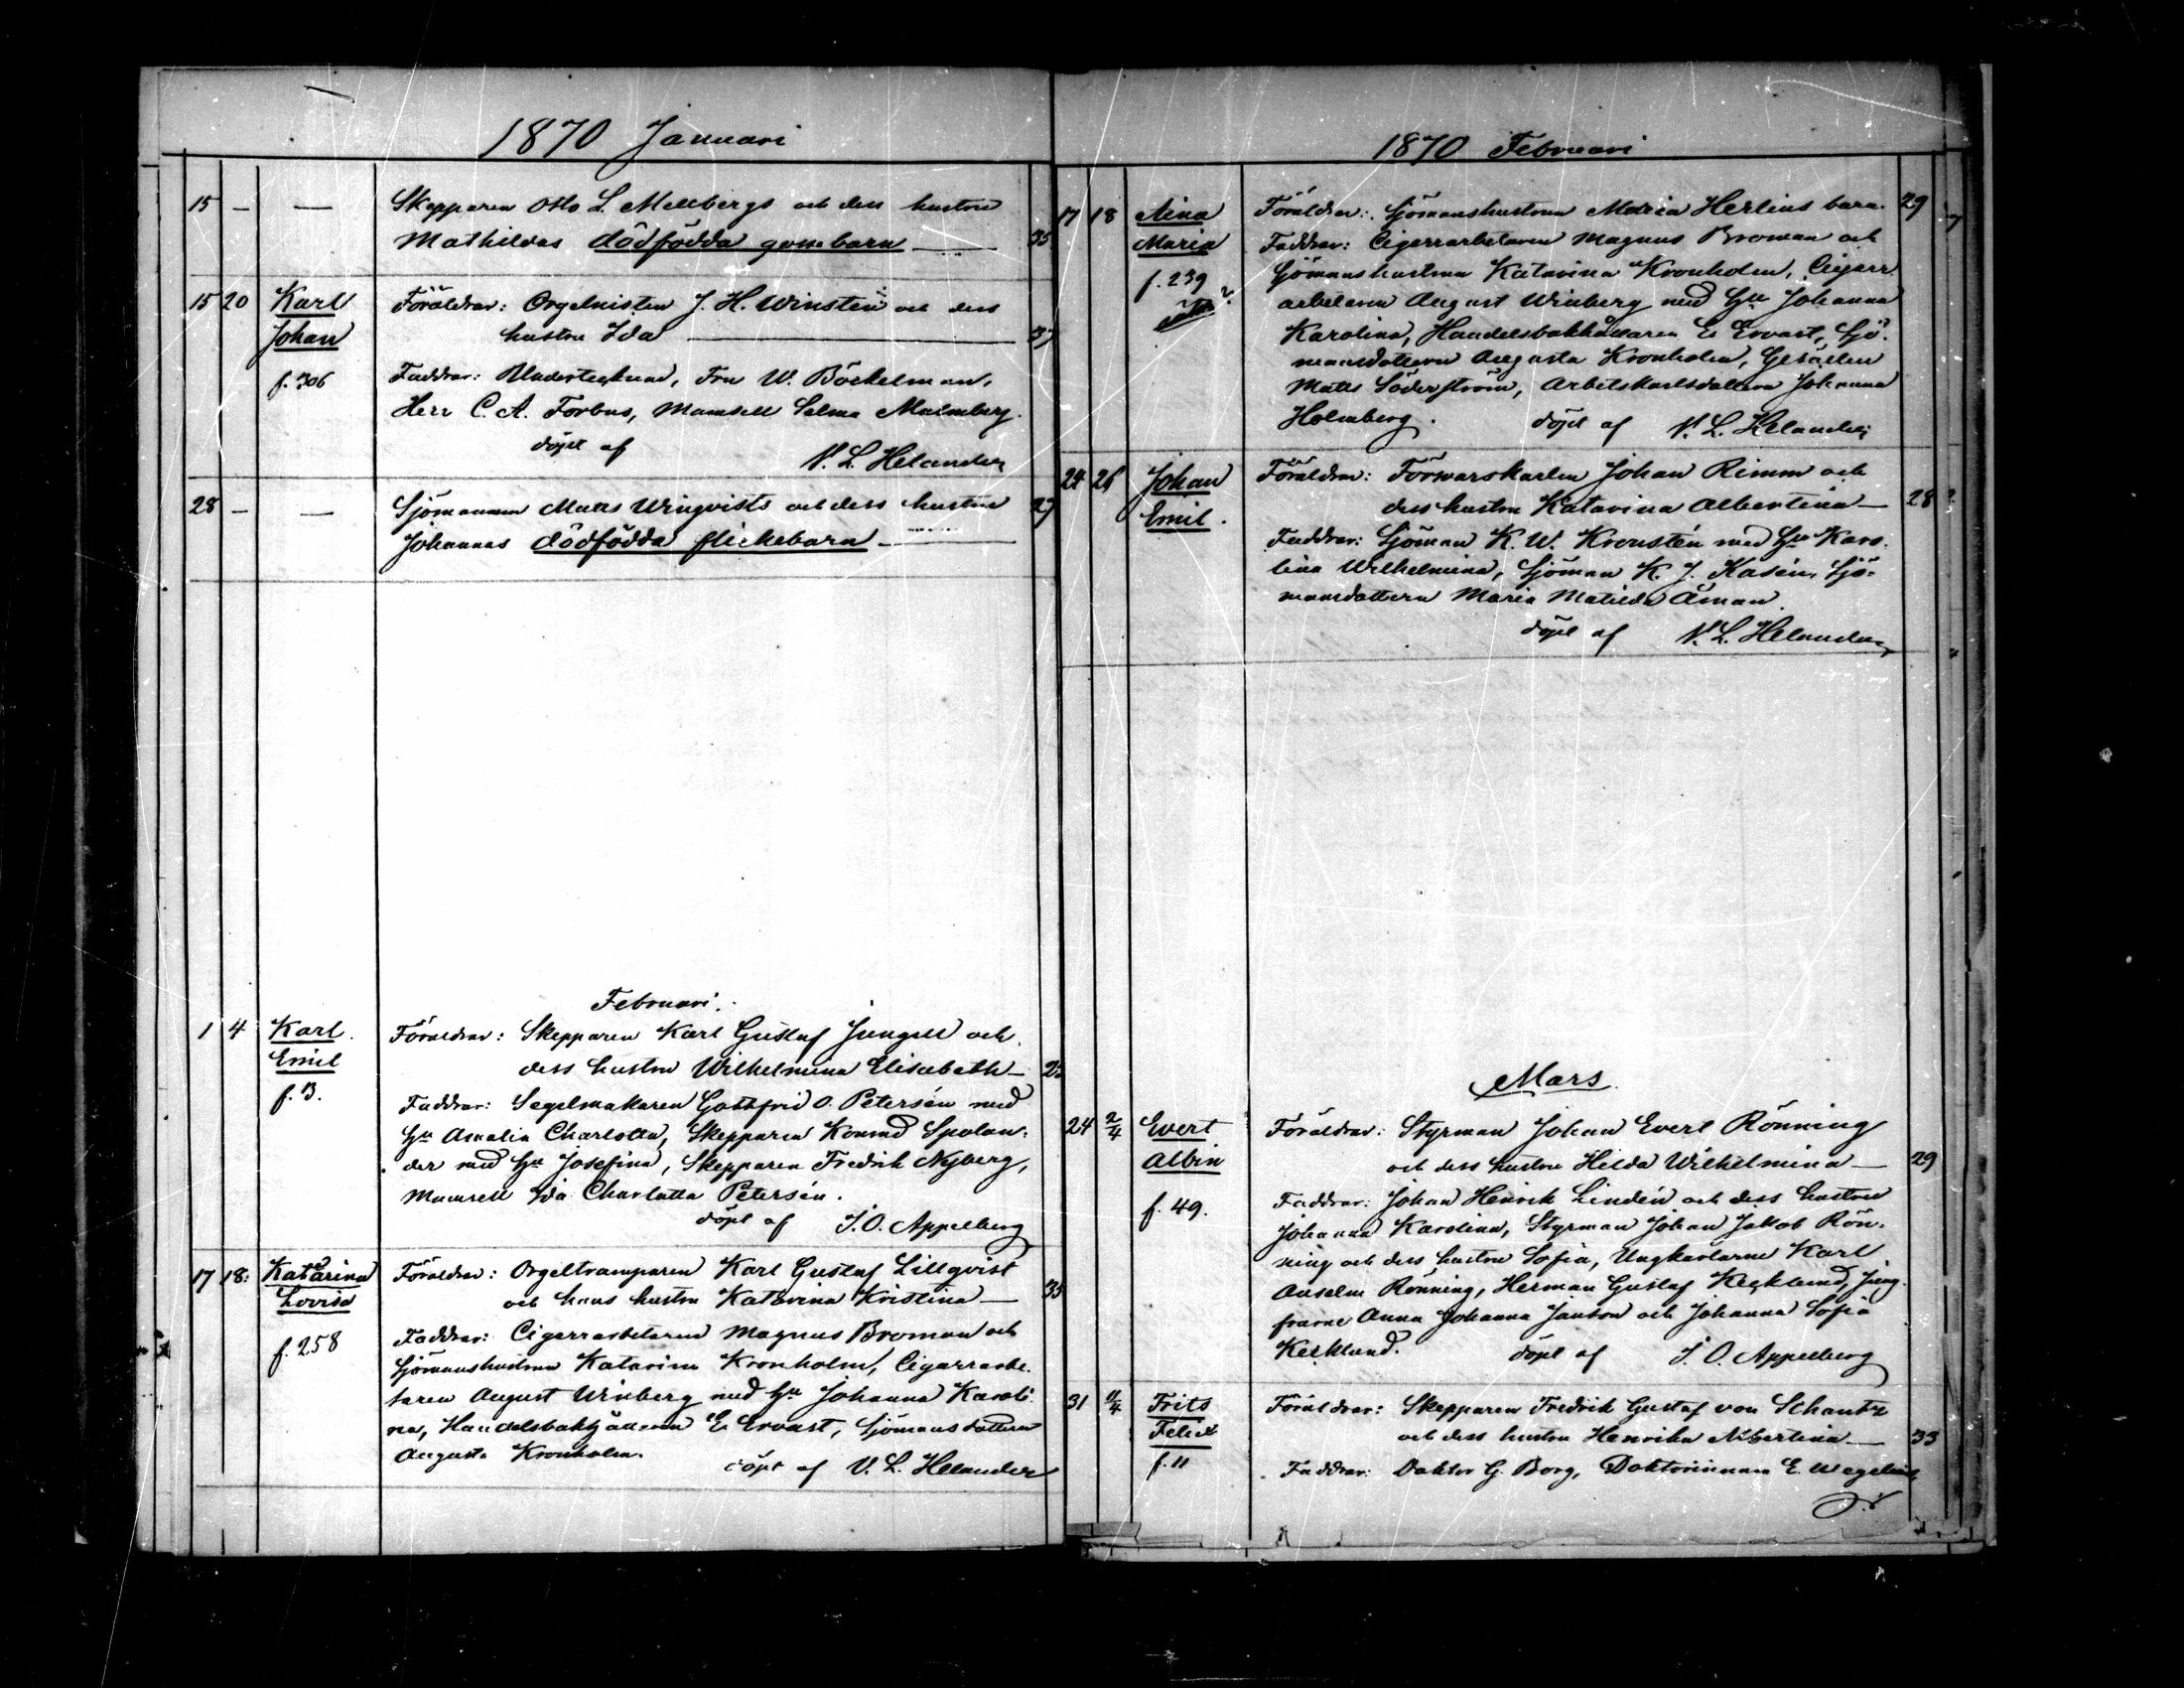 1870 Januari
15 — — Skepparen Otto L. Mellbergs och dess hustru
Mathildas dödfödda gossebarn — 35
15 20 Karl Föräldrar: Orgelnisten J. H. Winstén och dess
Johan hustru Ida — 37
f. 306 Faddrar: Undertecknad, Fru W. Böckelman,
Herr C. A. Forbus, Mamsell Selma Malmberg.
döpt af V. L. Helander
28 — — Sjömannen Matts Winqvists och dess hustrus 27
Johannas dödfödda flickebarn —
Februari.
1 4 Karl Föräldrar: Skepparen Karl Gustaf Jungell och
Emil dess hustru Wilhelmina Elisabeth —
f. 13. Faddrar: Segelmakaren Gottfrid O. Petersén med
Hu Amalia Charlotta, Skepparen Konrad Spolan-
der med Hu Josefina, Skepparen Fredrik Nyberg,
Mamsell Ida Charlotta Petersén.
döpt af J. O. Appelberg
17 18: Katarina Föräldrar: Orgeltramparen Karl Gustaf Lillqvist
Lovisa och hans hustru Katarina Kristina — 35
f. 258 Faddrar: Cigarrarbetaren Magnus Broman och
Sjömanshustrun Katarina Kronholm, Cigarrarbe-
taren August Winberg med Hu Johanna Karoli-
na, Handelsbokhållaren E. Ervast, Sjömansdottern
Augusta Kronholm.
döpt af V. L. Helander
1870 Februari
17 18 Aina Föräldrar: Sjömanshustrun Maria Herlins barn. 29
Maria Faddrar: Cigarrarbetaren Magnus Broman och
f. 239 Sjömanshustrun Katarina Kronholm, Cigarr-
arbetaren August Winberg med Hu Johanna
Karolina, Handelsbokhållaren E. Ervast, Sjö-
mansdottern Augusta Kronholm, Gesällen
Matts Söderström, Arbetskarlsdottern Johanna
Holmberg. döpt af V. L. Helander
24 26 Johan Föräldrar: Förvarskarlen Johan Rimm och
Emil. dess hustru Katarina Albertina — 28
Faddrar: Sjöman K. W. Kronstén med Hu Karo-
lina Wilhelmina, Sjöman K. J. Kasén, Sjö-
mansdottern Maria Matilda Åman.
döpt af V. L. Helander
Mars.
24 2/4 Evert Föräldrar: Styrman Johan Evert Rönning
Albin och dess hustru Hilda Wilhelmina — 29
f. 49. Faddrar: Johan Henrik Lindén och dess hustru
Johanna Karolina, Styrman Johan Jakob Rön-
ning och dess hustru Sofia, Ungkarlarne Karl
Anselm Rönning, Herman Gustaf Kecklund, Jung-
fruarne Anna Johanna Janson och Johanna Sofia
Kecklund. döpt af J. O. Appelberg
31 11/4 Frits Föräldrar: Skepparen Fredrik Gustaf von Schantz
Felix och dess hustru Henrika Albertina — 33
f. 11 Faddrar: Doktor G. Borg, Doktorinnan E. Wegelius,